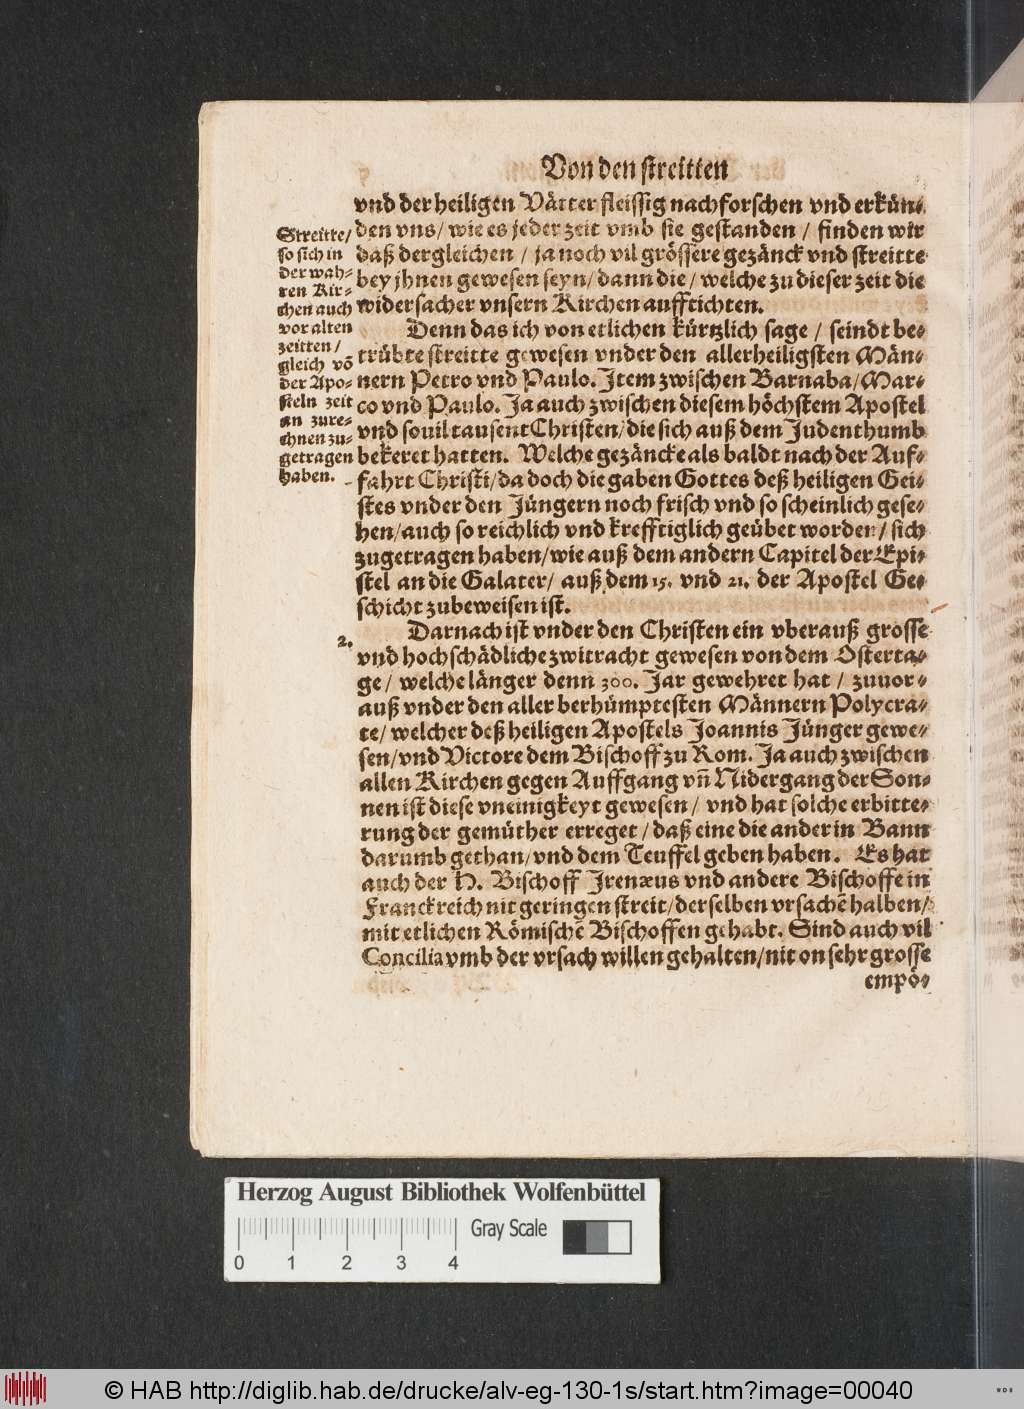 Von den streitten
vnd der heiligen Vätter fleissig nachforschen vnd erkün⸗
den vns/ wie es jeder zeit vmb sie gestanden / finden wir
daß dergleichen / ja noch vil grössere gezänck vnd streitte
bey jhnen gewesen seyn/ dann die/ welche zu dieser zeit die
widersacher vnsern Kirchen aufftichten.
Streitte/
so sich in
der wah⸗
ren Kir⸗
chen auch
vor alten
zeitten /
gleich võ
der Apo⸗
steln zeit
an zure⸗
chnen zu⸗
getragen
haben.
Denn das ich von etlichen kürtzlich sage / seindt be⸗
trübte streitte gewesen vnder den allerheiligsten Män⸗
nern Petro vnd Paulo. Item zwischen Barnaba/ Mar⸗
co vnd Paulo. Ja auch zwischen diesem höchstem Apostel
vnd souil tausent Christen/ die sich auß dem Judenthumb
bekeret hatten. Welche gezäncke als baldt nach der Auf⸗
fahrt Christi/ da doch die gaben Gottes deß heiligen Gei⸗
stes vnder den Jüngern noch frisch vnd so scheinlich gese⸗
hen/ auch so reichlich vnd krefftiglich geübet worden/ sich
zugetragen haben/ wie auß dem andern Capitel der Epi⸗
stel an die Galater/ auß dem 15. vnd 21. der Apostel Ge⸗
schicht zubeweisen ist.
2.
Darnach ist vnder den Christen ein vberauß grosse
vnd hochschädliche zwitracht gewesen von dem Osterta⸗
ge/ welche länger denn 300. Jar gewehret hat / zuuor⸗
auß vnder den aller berhümptesten Männern Polycra⸗
te/ welcher deß heiligen Apostels Joannis Jünger gewe⸗
sen/ vnd Victore dem Bischoff zu Rom. Ja auch zwischen
allen Kirchen gegen Auffgang vñ Nidergang der Son⸗
nen ist diese vneinigkeyt gewesen/ vnd hat solche erbitte⸗
rung der gemüther erreget/ daß eine die ander in Bann
darumb gethan/ vnd dem Teuffel geben haben. Es hat
auch der H. Bischoff Irenæus vnd andere Bischoffe in
Franckreich nit geringen streit/ derselben vrsachẽ halben/
mit etlichen Römischẽ Bischoffen gehabt. Sind auch vil
Concilia vmb der vrsach willen gehalten/ nit on sehr grosse
empö⸗
Herzog August Bibliothek Wolfenbüttel
Gray Scale
0 1 2 3 4
© HAB http://diglib.hab.de/drucke/alv-eg-130-1s/start.htm?image=00040